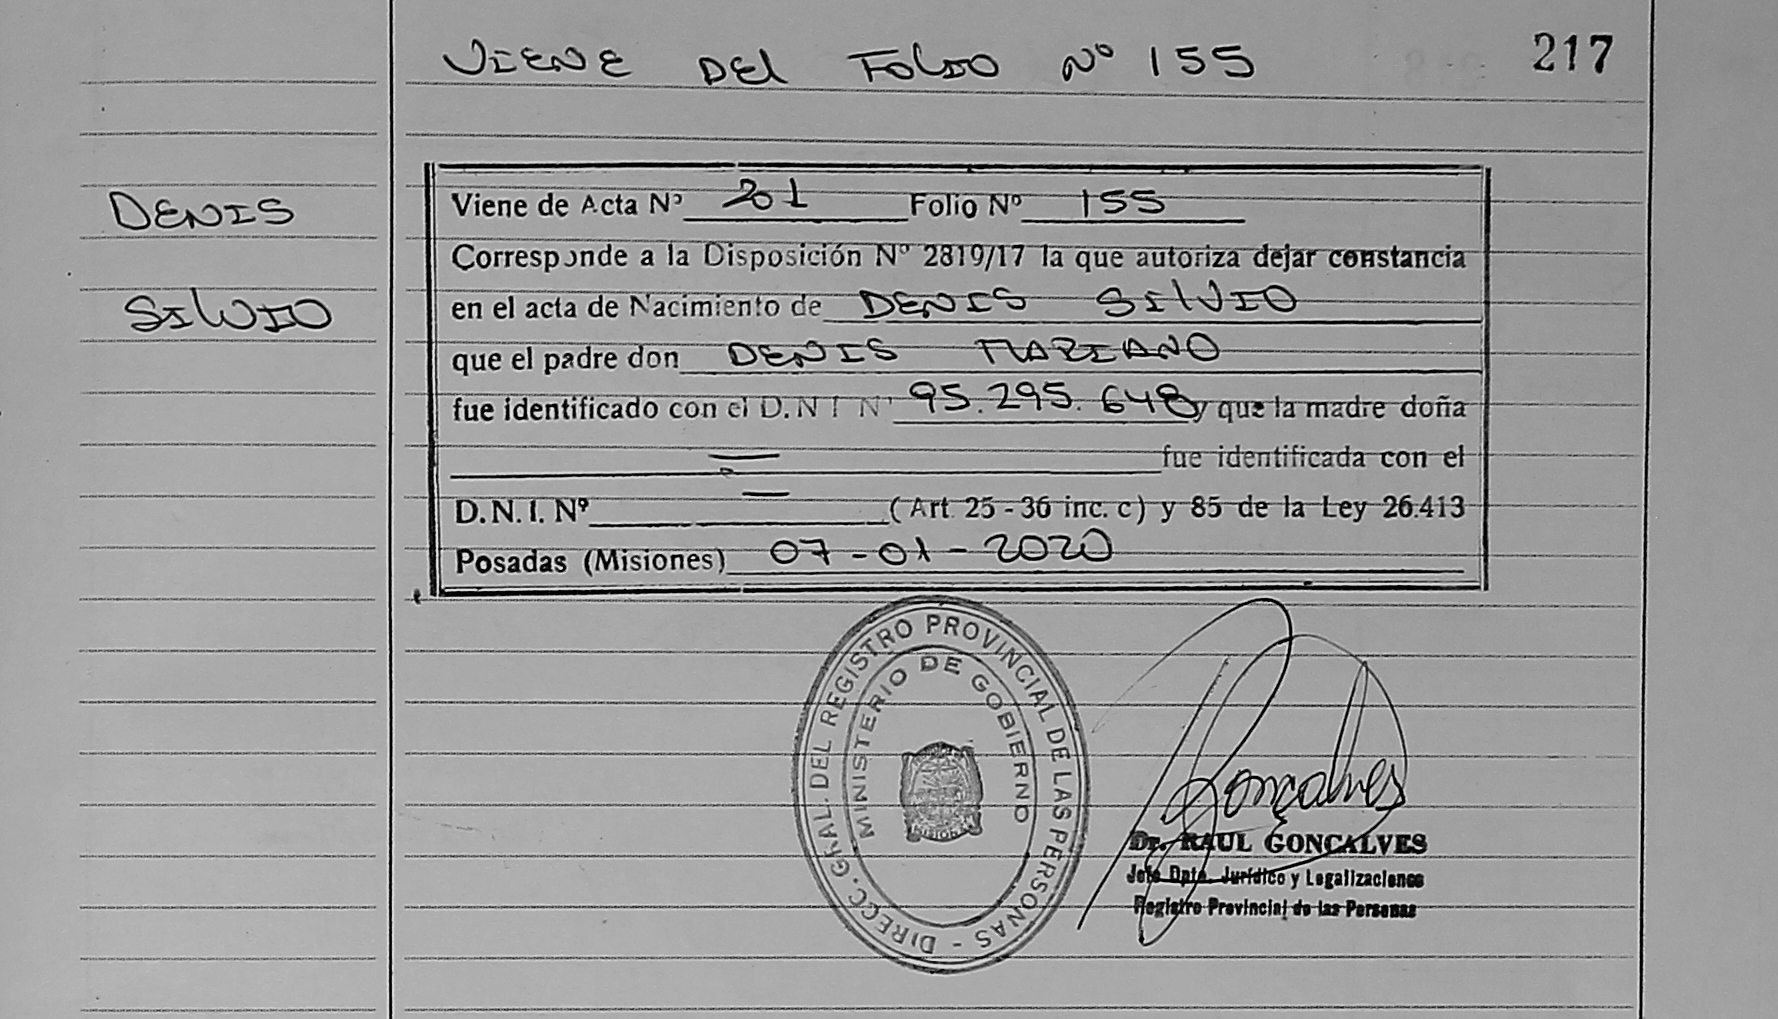 VIENE DEL FOLIO Nº 155
217
DENIS
SILVIO
Viene de Acta Nº 201 Folio Nº 155
Corresponde a la Disposición Nº 2819/17 la que autoriza dejar constancia
en el acta de Nacimiento de DENIS SILVIO
que el padre don DENIS MARIANO
fue identificado con el D.N.I. Nº 95.295.648 y que la madre doña
fue identificada con el
D.N.I. Nº — (Art. 25 - 36 inc. c) y 85 de la Ley 26.413
Posadas (Misiones) 07-01-2020
DIRECC. GRAL. DEL REGISTRO PROVINCIAL DE LAS PERSONAS -
MINISTERIO DE GOBIERNO
MISIONES
Gonçalves
Dr. RAUL GONÇALVES
Jefe Dpto. Jurídico y Legalizaciones
Registro Provincial de las Personas